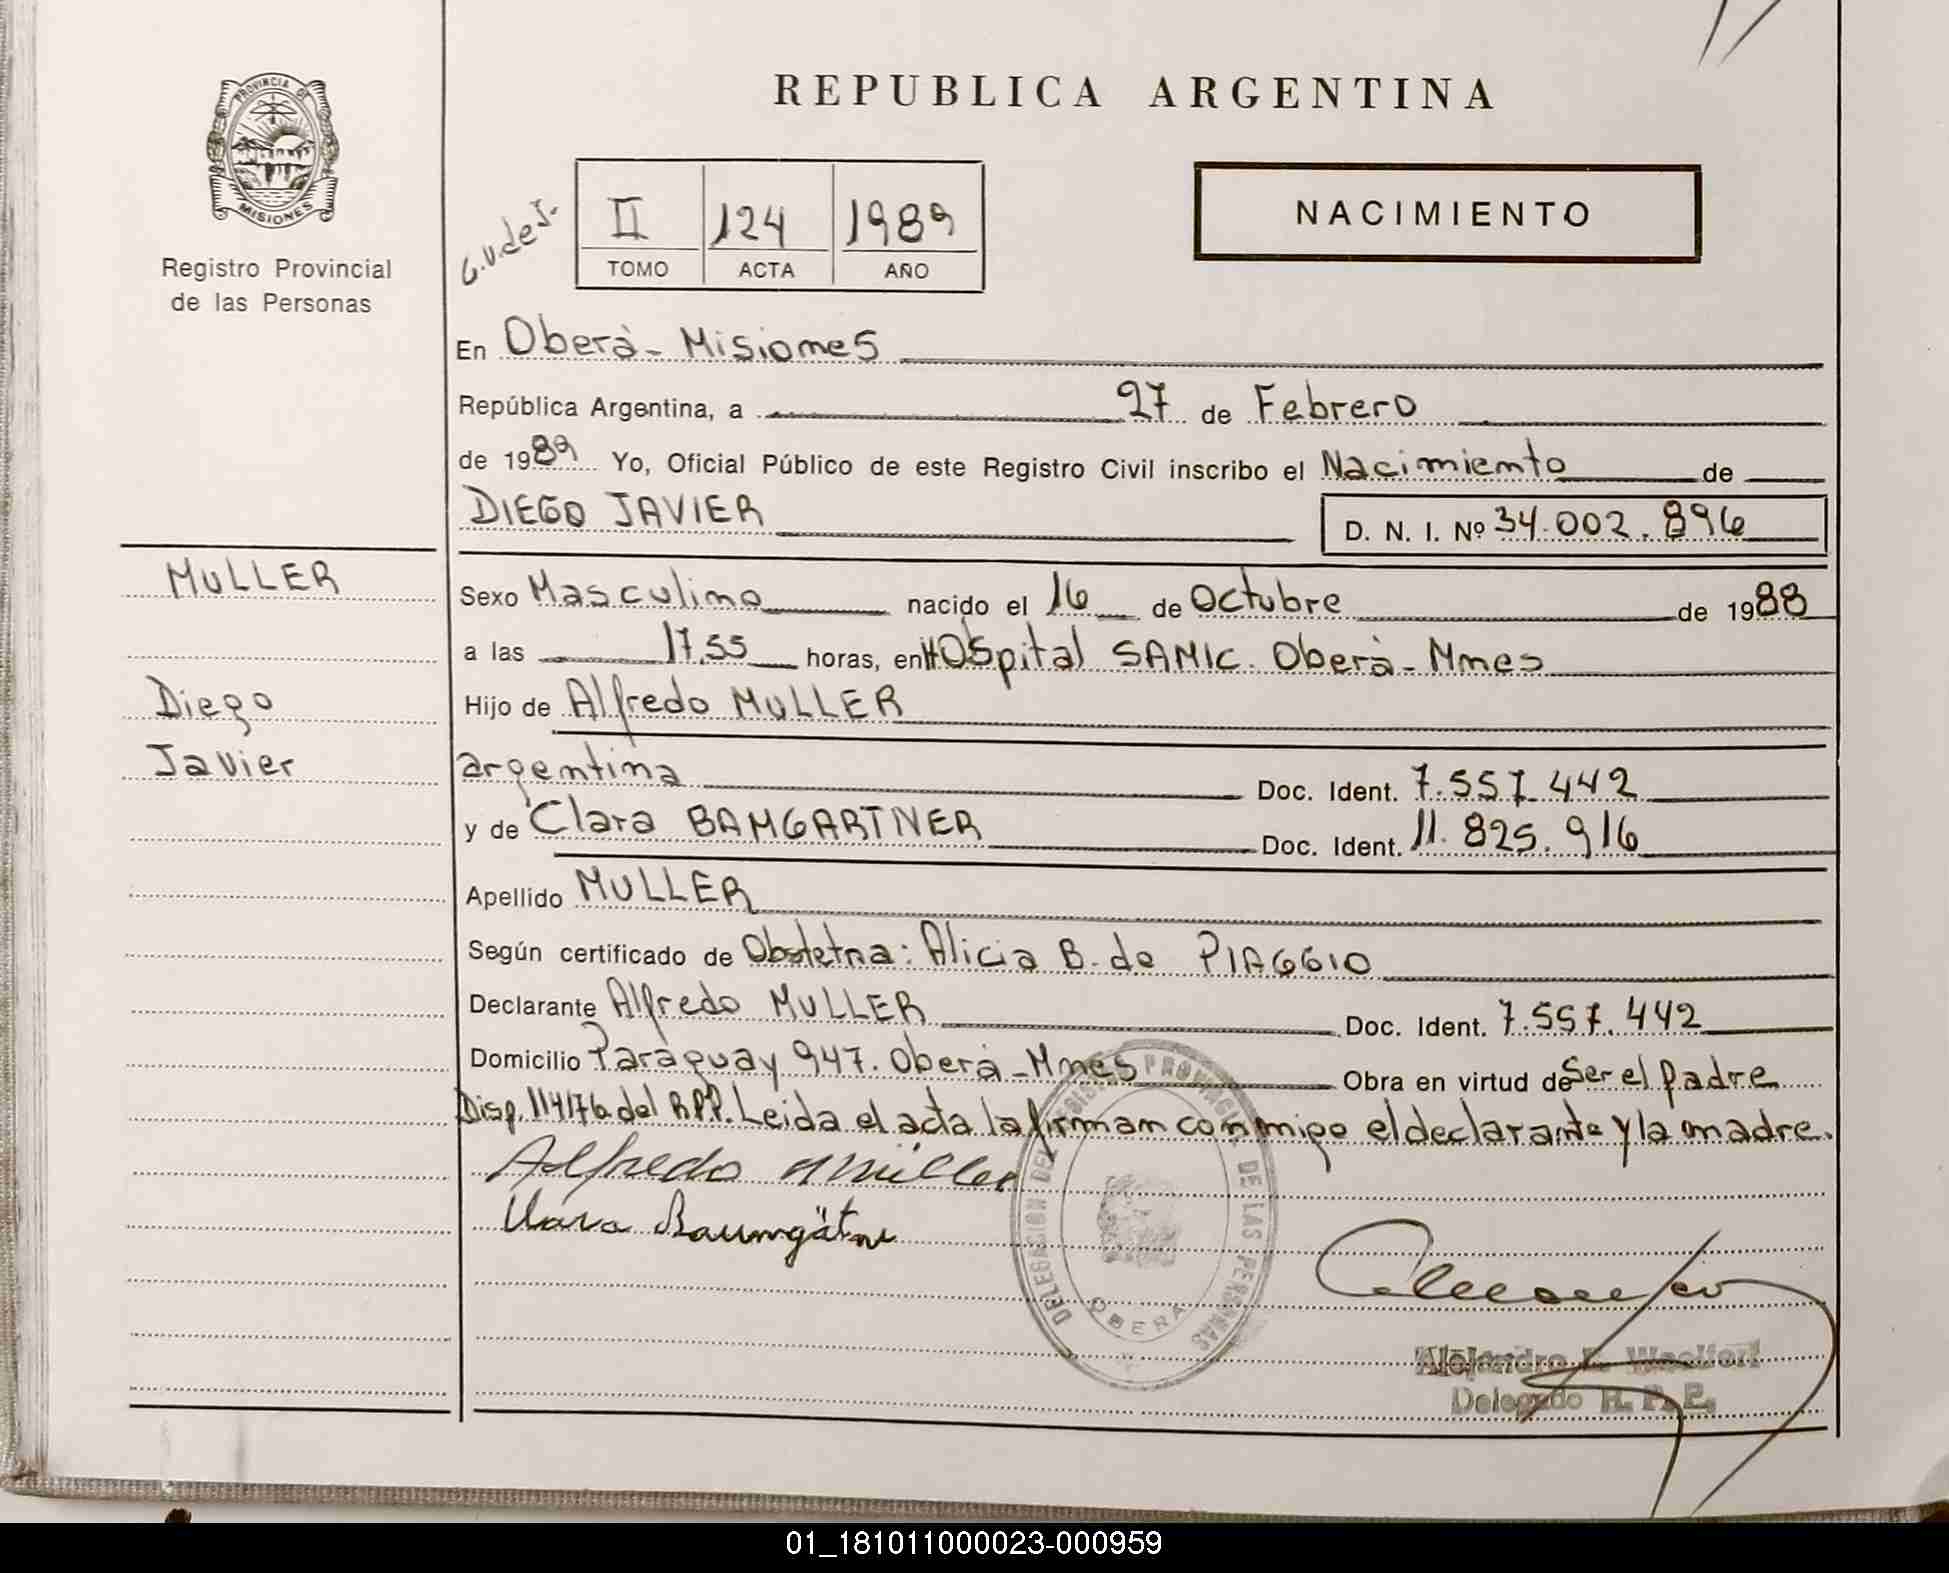 REPUBLICA ARGENTINA
PROVINCIA DE
MISIONES
Registro Provincial
de las Personas
G.V.deJ.
II 124 1989
TOMO ACTA AÑO
NACIMIENTO
En Oberà - Misiones
República Argentina, a 27 de Febrero
de 1989 Yo, Oficial Público de este Registro Civil inscribo el Nacimiento de
DIEGO JAVIER D. N. I. Nº 34.002.896
MULLER
Diego
Javier
Sexo Masculino nacido el 16 de Octubre de 1988
a las 17,55 horas, en HOSpital SAMIC. Oberà - Mnes
Hijo de Alfredo MULLER
argentina Doc. Ident. 7.557.442
y de Clara BAMGARTNER Doc. Ident. 11.825.916
Apellido MULLER
Según certificado de Obstetra: Alicia B. de PIAGGIO
Declarante Alfredo MULLER Doc. Ident. 7.557.442
Domicilio Paraguay 947. Oberà - Mnes Obra en virtud de Ser el padre
Disp. 114/76 del RPP. Leida el acta la firman conmigo el declarante y la madre.
Alfredo Müller
Clara Baumgätne
DELEGACION DEL REGISTRO PROVINCIAL DE LAS PERSONAS
OBERA
Alejandro
Delegado R. P. P.
01_181011000023-000959